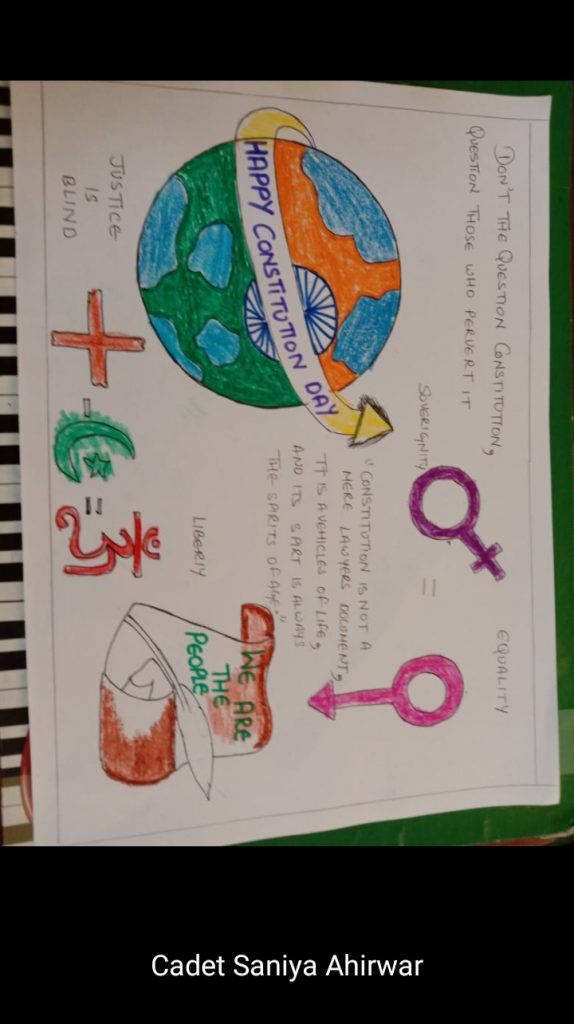 DON'T THE QUESTION CONSTITUTION,
QUESTION THOSE WHO PERVERT IT
SOVERIGNITY
EQUALITY
=
HAPPY CONSTITUTION DAY
"CONSTITUTION IS NOT A
MERE LAWYERS DOCUMENT,
IT IS A VEHICLES OF LIFE,
AND ITS SPIRT IS ALWAYS
THE SPIRITS OF AGE."
LIBERTY
WE ARE
THE
PEOPLE
JUSTICE
IS
BLIND
- = ॐ
Cadet Saniya Ahirwar